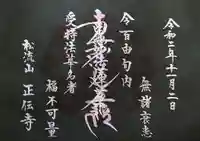 令和二年十一月二日
無諸衰患
今百由旬内
南無妙法蓮華経
受持法華名者
福不可量
松流山 正伝寺